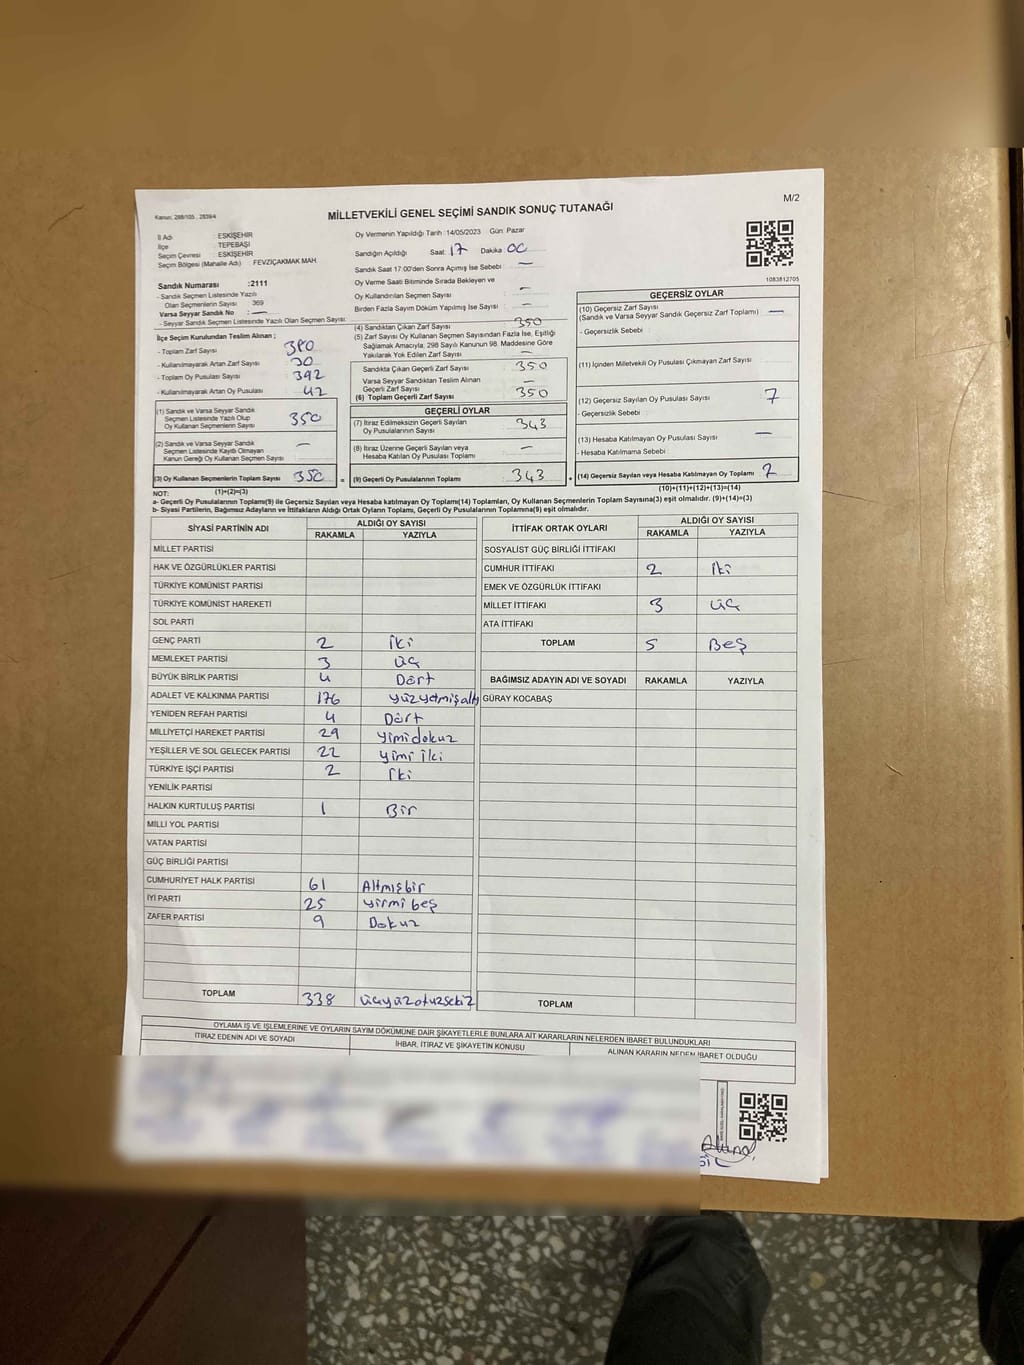 M/2
Kanun: 298/105 , 2839/4
MİLLETVEKİLİ GENEL SEÇİMİ SANDIK SONUÇ TUTANAĞI
İl Adı : ESKİŞEHİR
İlçe : TEPEBAŞI
Seçim Çevresi : ESKİŞEHİR
Seçim Bölgesi (Mahalle Adı) : FEVZİÇAKMAK MAH.
Sandık Numarası :2111
- Sandık Seçmen Listesinde Yazılı
Olan Seçmenlerin Sayısı : 369
Varsa Seyyar Sandık No : —
- Seyyar Sandık Seçmen Listesinde Yazılı Olan Seçmen Sayısı:
Oy Vermenin Yapıldığı Tarih :14/05/2023 Gün: Pazar
Sandığın Açıldığı Saat: 17 Dakika: 00
Sandık Saat 17:00'den Sonra Açılmış İse Sebebi : —
Oy Verme Saati Bitiminde Sırada Bekleyen ve
Oy Kullandırılan Seçmen Sayısı : —
Birden Fazla Sayım Döküm Yapılmış İse Sayısı : —
1083812705
İlçe Seçim Kurulundan Teslim Alınan ;
- Toplam Zarf Sayısı : 380
- Kullanılmayarak Artan Zarf Sayısı : 30
- Toplam Oy Pusulası Sayısı : 392
- Kullanılmayarak Artan Oy Pusulası : 42
(1) Sandık ve Varsa Seyyar Sandık
Seçmen Listesinde Yazılı Olup
Oy Kullanan Seçmenlerin Sayısı : 350
(2) Sandık ve Varsa Seyyar Sandık
Seçmen Listesinde Kayıtlı Olmayan
Kanun Gereği Oy Kullanan Seçmen Sayısı : —
(3) Oy Kullanan Seçmenlerin Toplam Sayısı : 350
(1)+(2)=(3)
(4) Sandıktan Çıkan Zarf Sayısı : 350
(5) Zarf Sayısı Oy Kullanan Seçmen Sayısından Fazla İse, Eşitliği
Sağlamak Amacıyla, 298 Sayılı Kanunun 98. Maddesine Göre
Yakılarak Yok Edilen Zarf Sayısı : —
Sandıkta Çıkan Geçerli Zarf Sayısı : 350
Varsa Seyyar Sandıktan Teslim Alınan
Geçerli Zarf Sayısı : —
(6) Toplam Geçerli Zarf Sayısı : 350
GEÇERLİ OYLAR
(7) İtiraz Edilmeksizin Geçerli Sayılan
Oy Pusulalarının Sayısı : 343
(8) İtiraz Üzerine Geçerli Sayılan veya
Hesaba Katılan Oy Pusulası Toplamı : —
= (9) Geçerli Oy Pusulalarının Toplamı : 343 +
GEÇERSİZ OYLAR
(10) Geçersiz Zarf Sayısı
(Sandık ve Varsa Seyyar Sandık Geçersiz Zarf Toplamı) : —
- Geçersizlik Sebebi :
(11) İçinden Milletvekili Oy Pusulası Çıkmayan Zarf Sayısı :
(12) Geçersiz Sayılan Oy Pusulası Sayısı : 7
- Geçersizlik Sebebi :
(13) Hesaba Katılmayan Oy Pusulası Sayısı : —
- Hesaba Katılmama Sebebi :
(14) Geçersiz Sayılan veya Hesaba Katılmayan Oy Toplamı : 7
(10)+(11)+(12)+(13)=(14)
NOT:
a- Geçerli Oy Pusulalarının Toplamı(9) ile Geçersiz Sayılan veya Hesaba katılmayan Oy Toplam(14) Toplamları, Oy Kullanan Seçmenlerin Toplam Sayısına(3) eşit olmalıdır. (9)+(14)=(3)
b- Siyasi Partilerin, Bağımsız Adayların ve İttifakların Aldığı Ortak Oyların Toplamı, Geçerli Oy Pusulalarının Toplamına(9) eşit olmalıdır.
SİYASİ PARTİNİN ADI ALDIĞI OY SAYISI
RAKAMLA YAZIYLA
MİLLET PARTİSİ
HAK VE ÖZGÜRLÜKLER PARTİSİ
TÜRKİYE KOMÜNİST PARTİSİ
TÜRKİYE KOMÜNİST HAREKETİ
SOL PARTİ
GENÇ PARTİ 2 iki
MEMLEKET PARTİSİ 3 üç
BÜYÜK BİRLİK PARTİSİ 4 Dört
ADALET VE KALKINMA PARTİSİ 176 yüzyetmişaltı
YENİDEN REFAH PARTİSİ 4 Dört
MİLLİYETÇİ HAREKET PARTİSİ 29 yimidokuz
YEŞİLLER VE SOL GELECEK PARTİSİ 22 yimi iki
TÜRKİYE İŞÇİ PARTİSİ 2 iki
YENİLİK PARTİSİ
HALKIN KURTULUŞ PARTİSİ 1 Bir
MİLLİ YOL PARTİSİ
VATAN PARTİSİ
GÜÇ BİRLİĞİ PARTİSİ
CUMHURİYET HALK PARTİSİ 61 Altmışbir
İYİ PARTİ 25 yirmi beş
ZAFER PARTİSİ 9 Dokuz
TOPLAM 338 üçyüzotuzsekiz
İTTİFAK ORTAK OYLARI ALDIĞI OY SAYISI
RAKAMLA YAZIYLA
SOSYALİST GÜÇ BİRLİĞİ İTTİFAKI
CUMHUR İTTİFAKI 2 iki
EMEK VE ÖZGÜRLÜK İTTİFAKI
MİLLET İTTİFAKI 3 üç
ATA İTTİFAKI
TOPLAM 5 Beş
BAĞIMSIZ ADAYIN ADI VE SOYADI RAKAMLA YAZIYLA
GÜRAY KOCABAŞ
TOPLAM
OYLAMA İŞ VE İŞLEMLERİNE VE OYLARIN SAYIM DÖKÜMÜNE DAİR ŞİKAYETLERLE BUNLARA AİT KARARLARIN NELERDEN İBARET BULUNDUKLARI
İTİRAZ EDENİN ADI VE SOYADI İHBAR, İTİRAZ VE ŞİKAYETİN KONUSU ALINAN KARARIN NEDEN İBARET OLDUĞU